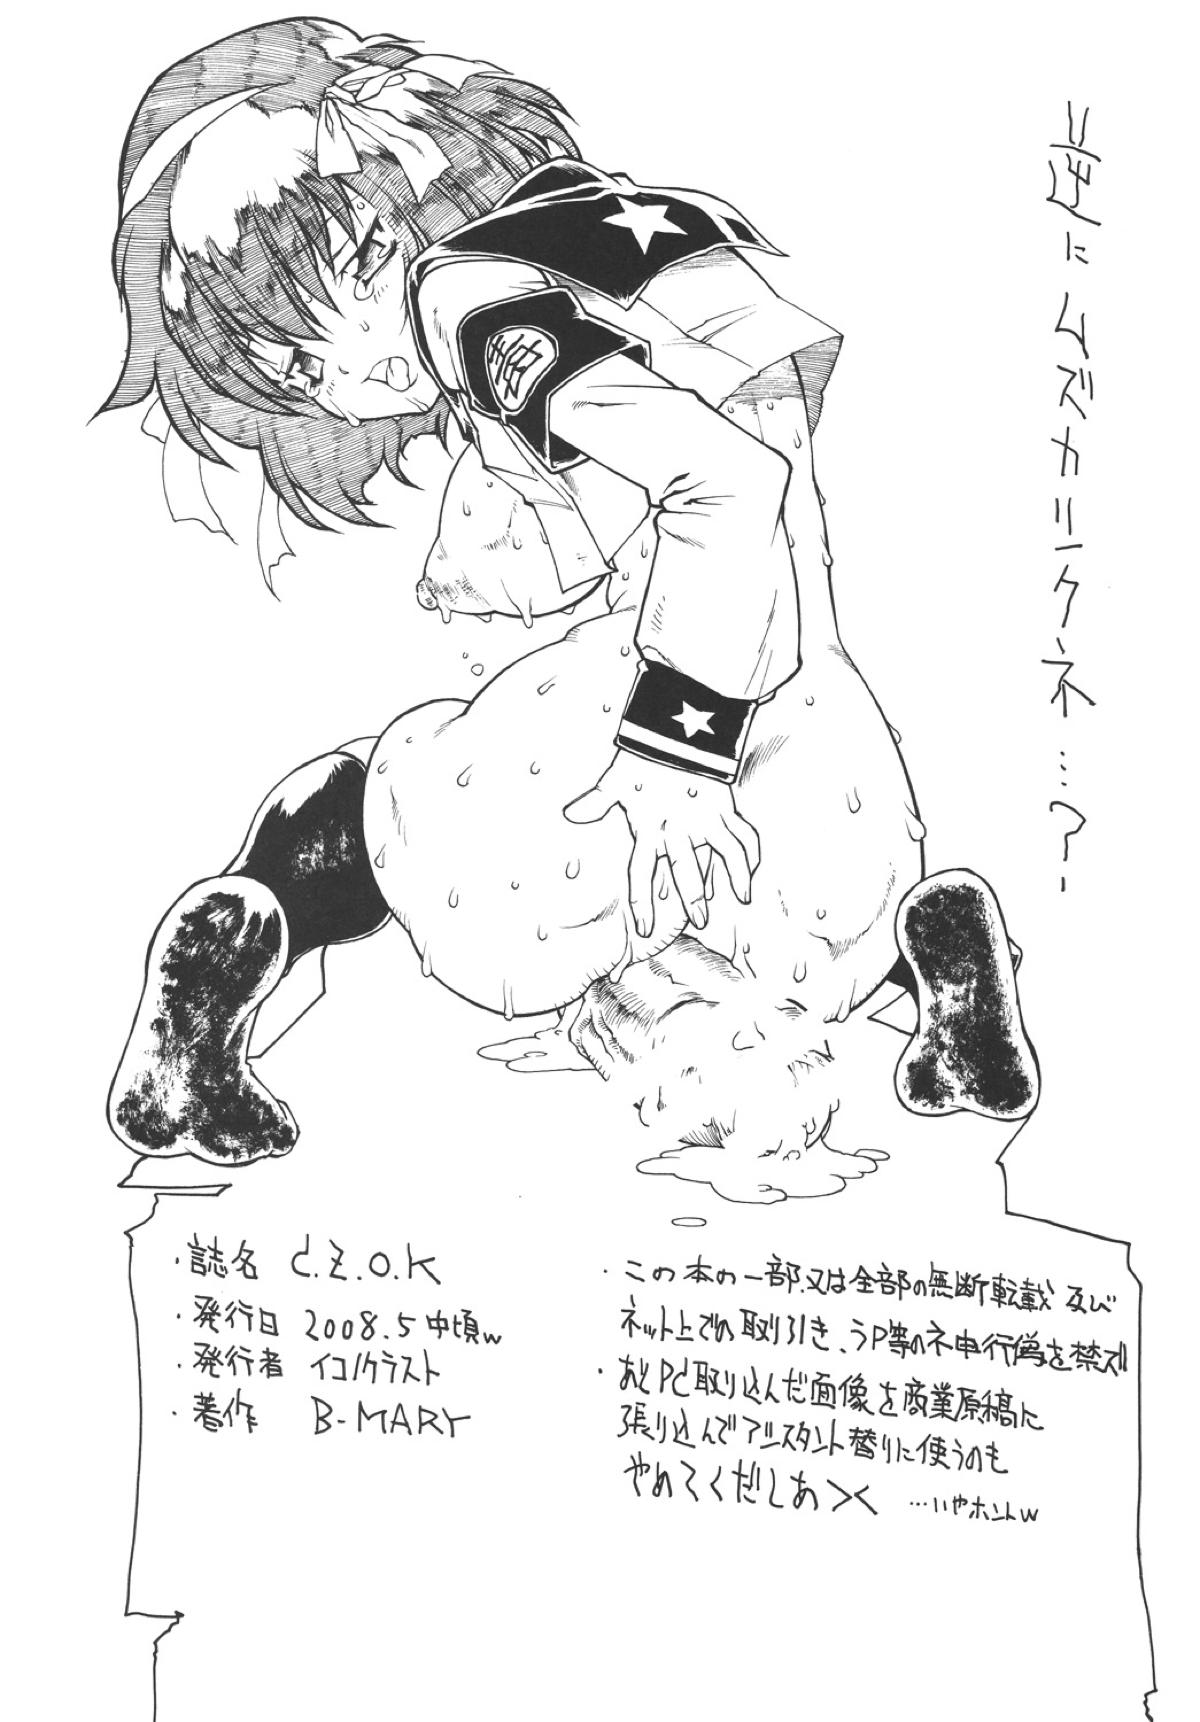 逆にムズカリークネ…?
・誌名 C.Z.O.K
・発行日 2008.5中頃w
・発行者 イコノクラスト
・著作 B-MARY
・この本の一部、又は全部の無断転載 及び
ネット上での取り引き、うP等のネ申行為を禁ズ
・あとPCに取り込んだ画像を商業原稿に
張り込んでアシスタント替りに使うのも
やめてくだしあ><
…いやホントw